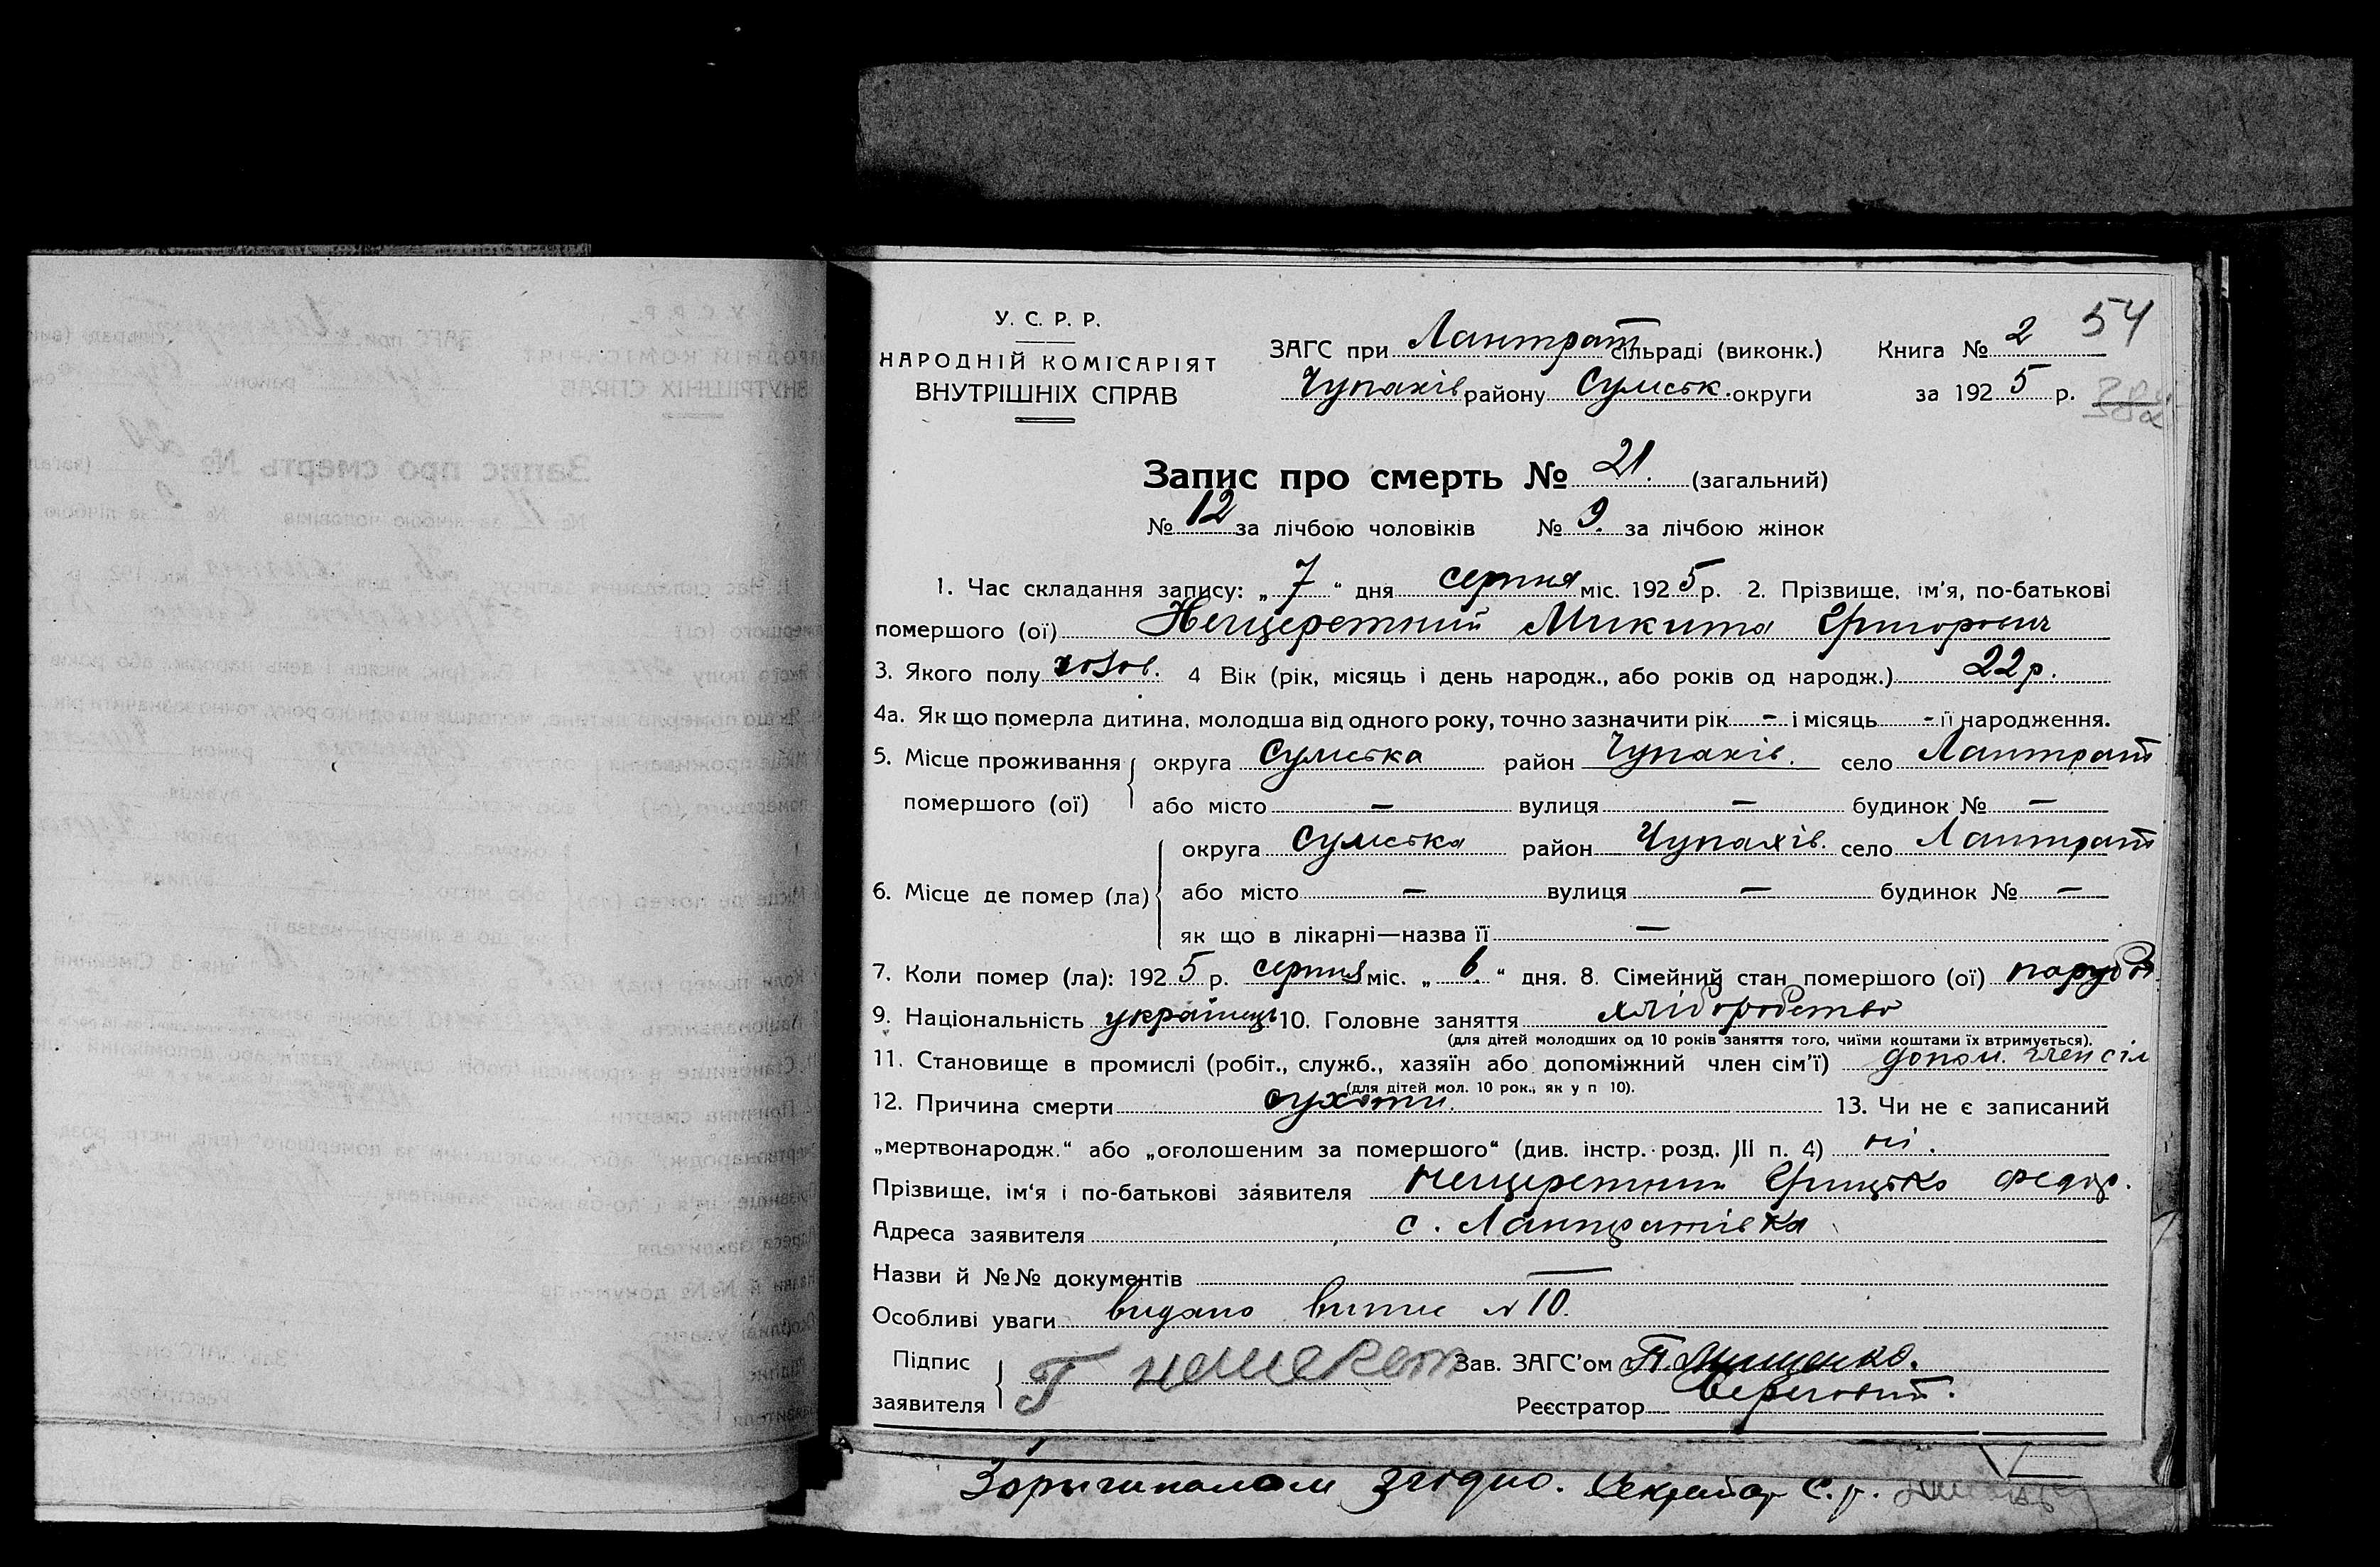 54
У. С. Р. Р.
НАРОДНІЙ КОМІСАРІЯТ
ВНУТРІШНІХ СПРАВ
ЗАГС при Лантрат сільраді (виконк.) Книга № 2
Чупахів району Сумськ. округи за 1925 р.
Запис про смерть № 21. (загальний)
№ 12 за лічбою чоловіків № 9. за лічбою жінок
1. Час складання запису: „7“ дня серпня міс. 1925 р. 2. Прізвище, ім'я, по-батькові
помершого (ої) Нещеретний Микита Григорович
3. Якого полу чолов. 4 Вік (рік, місяць і день народж., або років од народж.) 22 р.
4а. Як що померла дитина, молодша від одного року, точно зазначити рік - і місяць - її народження.
5. Місце проживання округа Сумська район Чупахів. село Лантрат
помершого (ої) або місто — вулиця — будинок № —
округа Сумська район Чупахів. село Лантрат
6. Місце де помер (ла) або місто — вулиця — будинок № —
як що в лікарні—назва її —
7. Коли помер (ла): 1925 р. серпня міс. „6“ дня. 8. Сімейний стан помершого (ої) парубок
9. Національність українець 10. Головне заняття хліборобство
(для дітей молодших од 10 років заняття того, чиїми коштами їх втримується).
11. Становище в промислі (робіт., служб., хазяїн або допоміжний член сім'ї) допом. член сім
(для дітей мол. 10 рок., як у п 10).
12. Причина смерти сухоти. 13. Чи не є записаний
„мертвонародж.“ або „оголошеним за помершого“ (див. інстр. розд. III п. 4) ні.
Прізвище, ім'я і по-батькові заявителя Нещеретний Грицько Федор.
Адреса заявителя с. Лантратівка
Назви й №№ документів —
Особливі уваги видано витис №10.
Підпис
заявителя Г
Зав. ЗАГС'ом П. Мищенко.
Реєстратор
З оригиналом згідно. Секретар С. р.